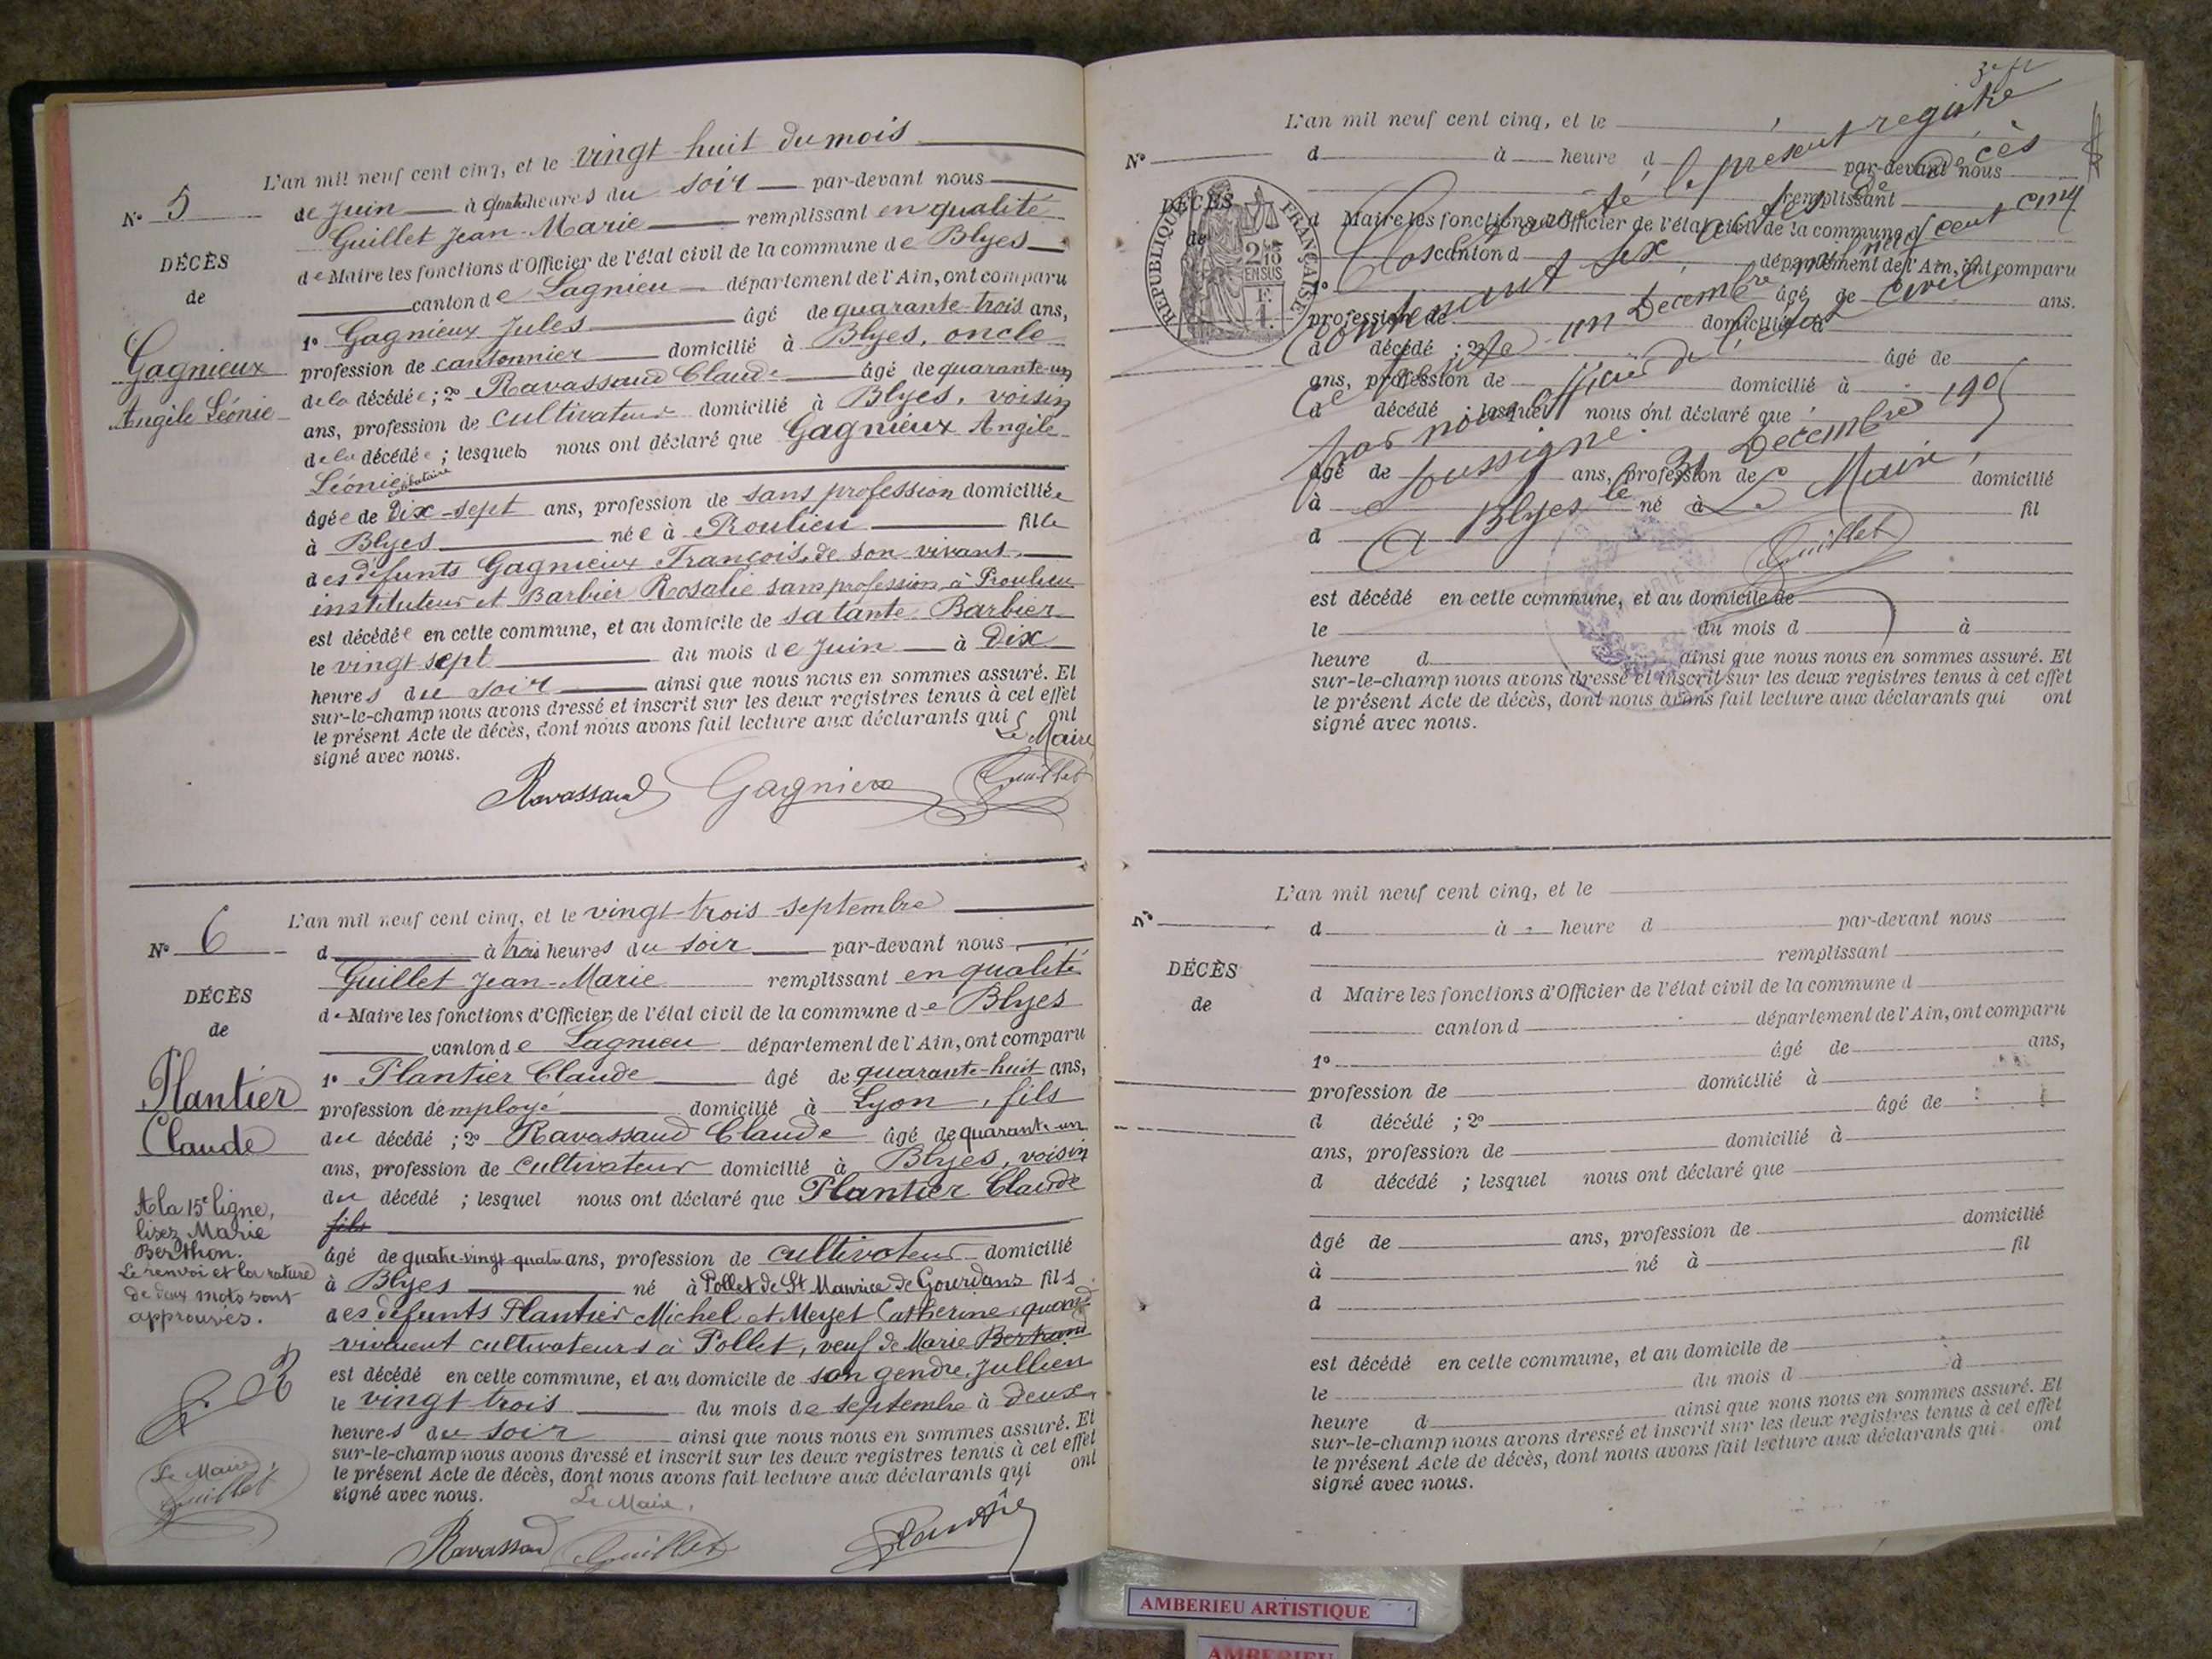 L'an mil neuf cent cinq, et le vingt huit du mois
N° 5 de Juin à quatre heures du soir par-devant nous
Guillet Jean-Marie remplissant en qualité
DÉCÈS
de Maire les fonctions d'Officier de l'état civil de la commune de Blyes
de
canton de Lagnieu département de l'Ain, ont comparu
1° Gagnieux Jules âgé de quarante-trois ans,
Gagnieux
profession de cantonnier domicilié à Blyes, oncle
Angèle Léonie
de la décédée ; 2° Ravassaud Claude âgé de quarante-un
ans, profession de cultivateur domicilié à Blyes, voisin
de la décédée ; lesquels nous ont déclaré que Gagnieux Angèle
Léonie célibataire
âgée de Dix-sept ans, profession de sans profession domiciliée
à Blyes née à Proulieu fille
des défunts Gagnieux François, de son vivant
instituteur et Barbier Rosalie sans profession à Proulieu
est décédée en cette commune, et au domicile de sa tante Barbier
le vingt sept du mois de Juin à Dix
heures du soir ainsi que nous nous en sommes assuré. Et
sur-le-champ nous avons dressé et inscrit sur les deux registres tenus à cet effet
le présent Acte de décès, dont nous avons fait lecture aux déclarants qui ont
signé avec nous. Le Maire
Ravassaud Gagnieux Guillet
L'an mil neuf cent cinq, et le vingt-trois septembre
N° 6 d à trois heures du soir par-devant nous
Guillet Jean-Marie remplissant en qualité
DÉCÈS
de Maire les fonctions d'Officier de l'état civil de la commune de Blyes
de
canton de Lagnieu département de l'Ain, ont comparu
1° Plantier Claude âgé de quarante-huit ans,
Plantier
profession d'employé domicilié à Lyon, fils
Claude
du décédé ; 2° Ravassaud Claude âgé de quarante-un
ans, profession de cultivateur domicilié à Blyes, voisin
du décédé ; lesquel nous ont déclaré que Plantier Claude
fils
âgé de quatre-vingt-quatre ans, profession de cultivateur domicilié
à Blyes né à Pollet de St Maurice de Gourdans fils
des défunts Plantier Michel et Meyet Catherine, quand
vivaient cultivateurs à Pollet, veuf de Marie Bertrand
est décédé en cette commune, et au domicile de son gendre, Jullien
le vingt trois du mois de septembre à deux
heures du soir ainsi que nous nous en sommes assuré. Et
sur-le-champ nous avons dressé et inscrit sur les deux registres tenus à cet effet
le présent Acte de décès, dont nous avons fait lecture aux déclarants qui ont
signé avec nous. Le Maire,
Ravassaud Guillet Plantier
A la 15e ligne,
lisez Marie
Berthon.
Le renvoi et la rature
de deux mots sont
approuvés.
Le Maire,
Guillet
L'an mil neuf cent cinq, et le
N° d à heure d par-devant nous
remplissant
DÉCÈS
de
d Maire les fonctions d'Officier de l'état civil de la commune d
canton d département de l'Ain, ont comparu
1° âgé de ans.
profession de domicilié à
d décédé ; 2° âgé de
ans, profession de domicilié à
d décédé ; lesquel nous ont déclaré que
âgé de ans, profession de domicilié
à né à fil
d
est décédé en cette commune, et au domicile de
le du mois d à
heure d ainsi que nous nous en sommes assuré. Et
sur-le-champ nous avons dressé et inscrit sur les deux registres tenus à cet effet
le présent Acte de décès, dont nous avons fait lecture aux déclarants qui ont
signé avec nous.
RÉPUBLIQUE FRANÇAISE
2/10 EN SUS
Clos et arrêté le présent registre
contenant six actes de décès
le trente-un Décembre mil neuf cent cinq
par nous officier de l'état civil
soussigné.
A Blyes le 31 Décembre 1905
Le Maire,
Guillet
L'an mil neuf cent cinq, et le
N° d à heure d par-devant nous
remplissant
DÉCÈS
d Maire les fonctions d'Officier de l'état civil de la commune d
de
canton d département de l'Ain, ont comparu
1° âgé de ans,
profession de domicilié à
d décédé ; 2° âgé de
ans, profession de domicilié à
d décédé ; lesquel nous ont déclaré que
âgé de ans, profession de domicilié
à né à fil
d
est décédé en cette commune, et au domicile de
le du mois d à
heure d ainsi que nous nous en sommes assuré. Et
sur-le-champ nous avons dressé et inscrit sur les deux registres tenus à cet effet
le présent Acte de décès, dont nous avons fait lecture aux déclarants qui ont
signé avec nous.
AMBERIEU ARTISTIQUE
AMBERIEU